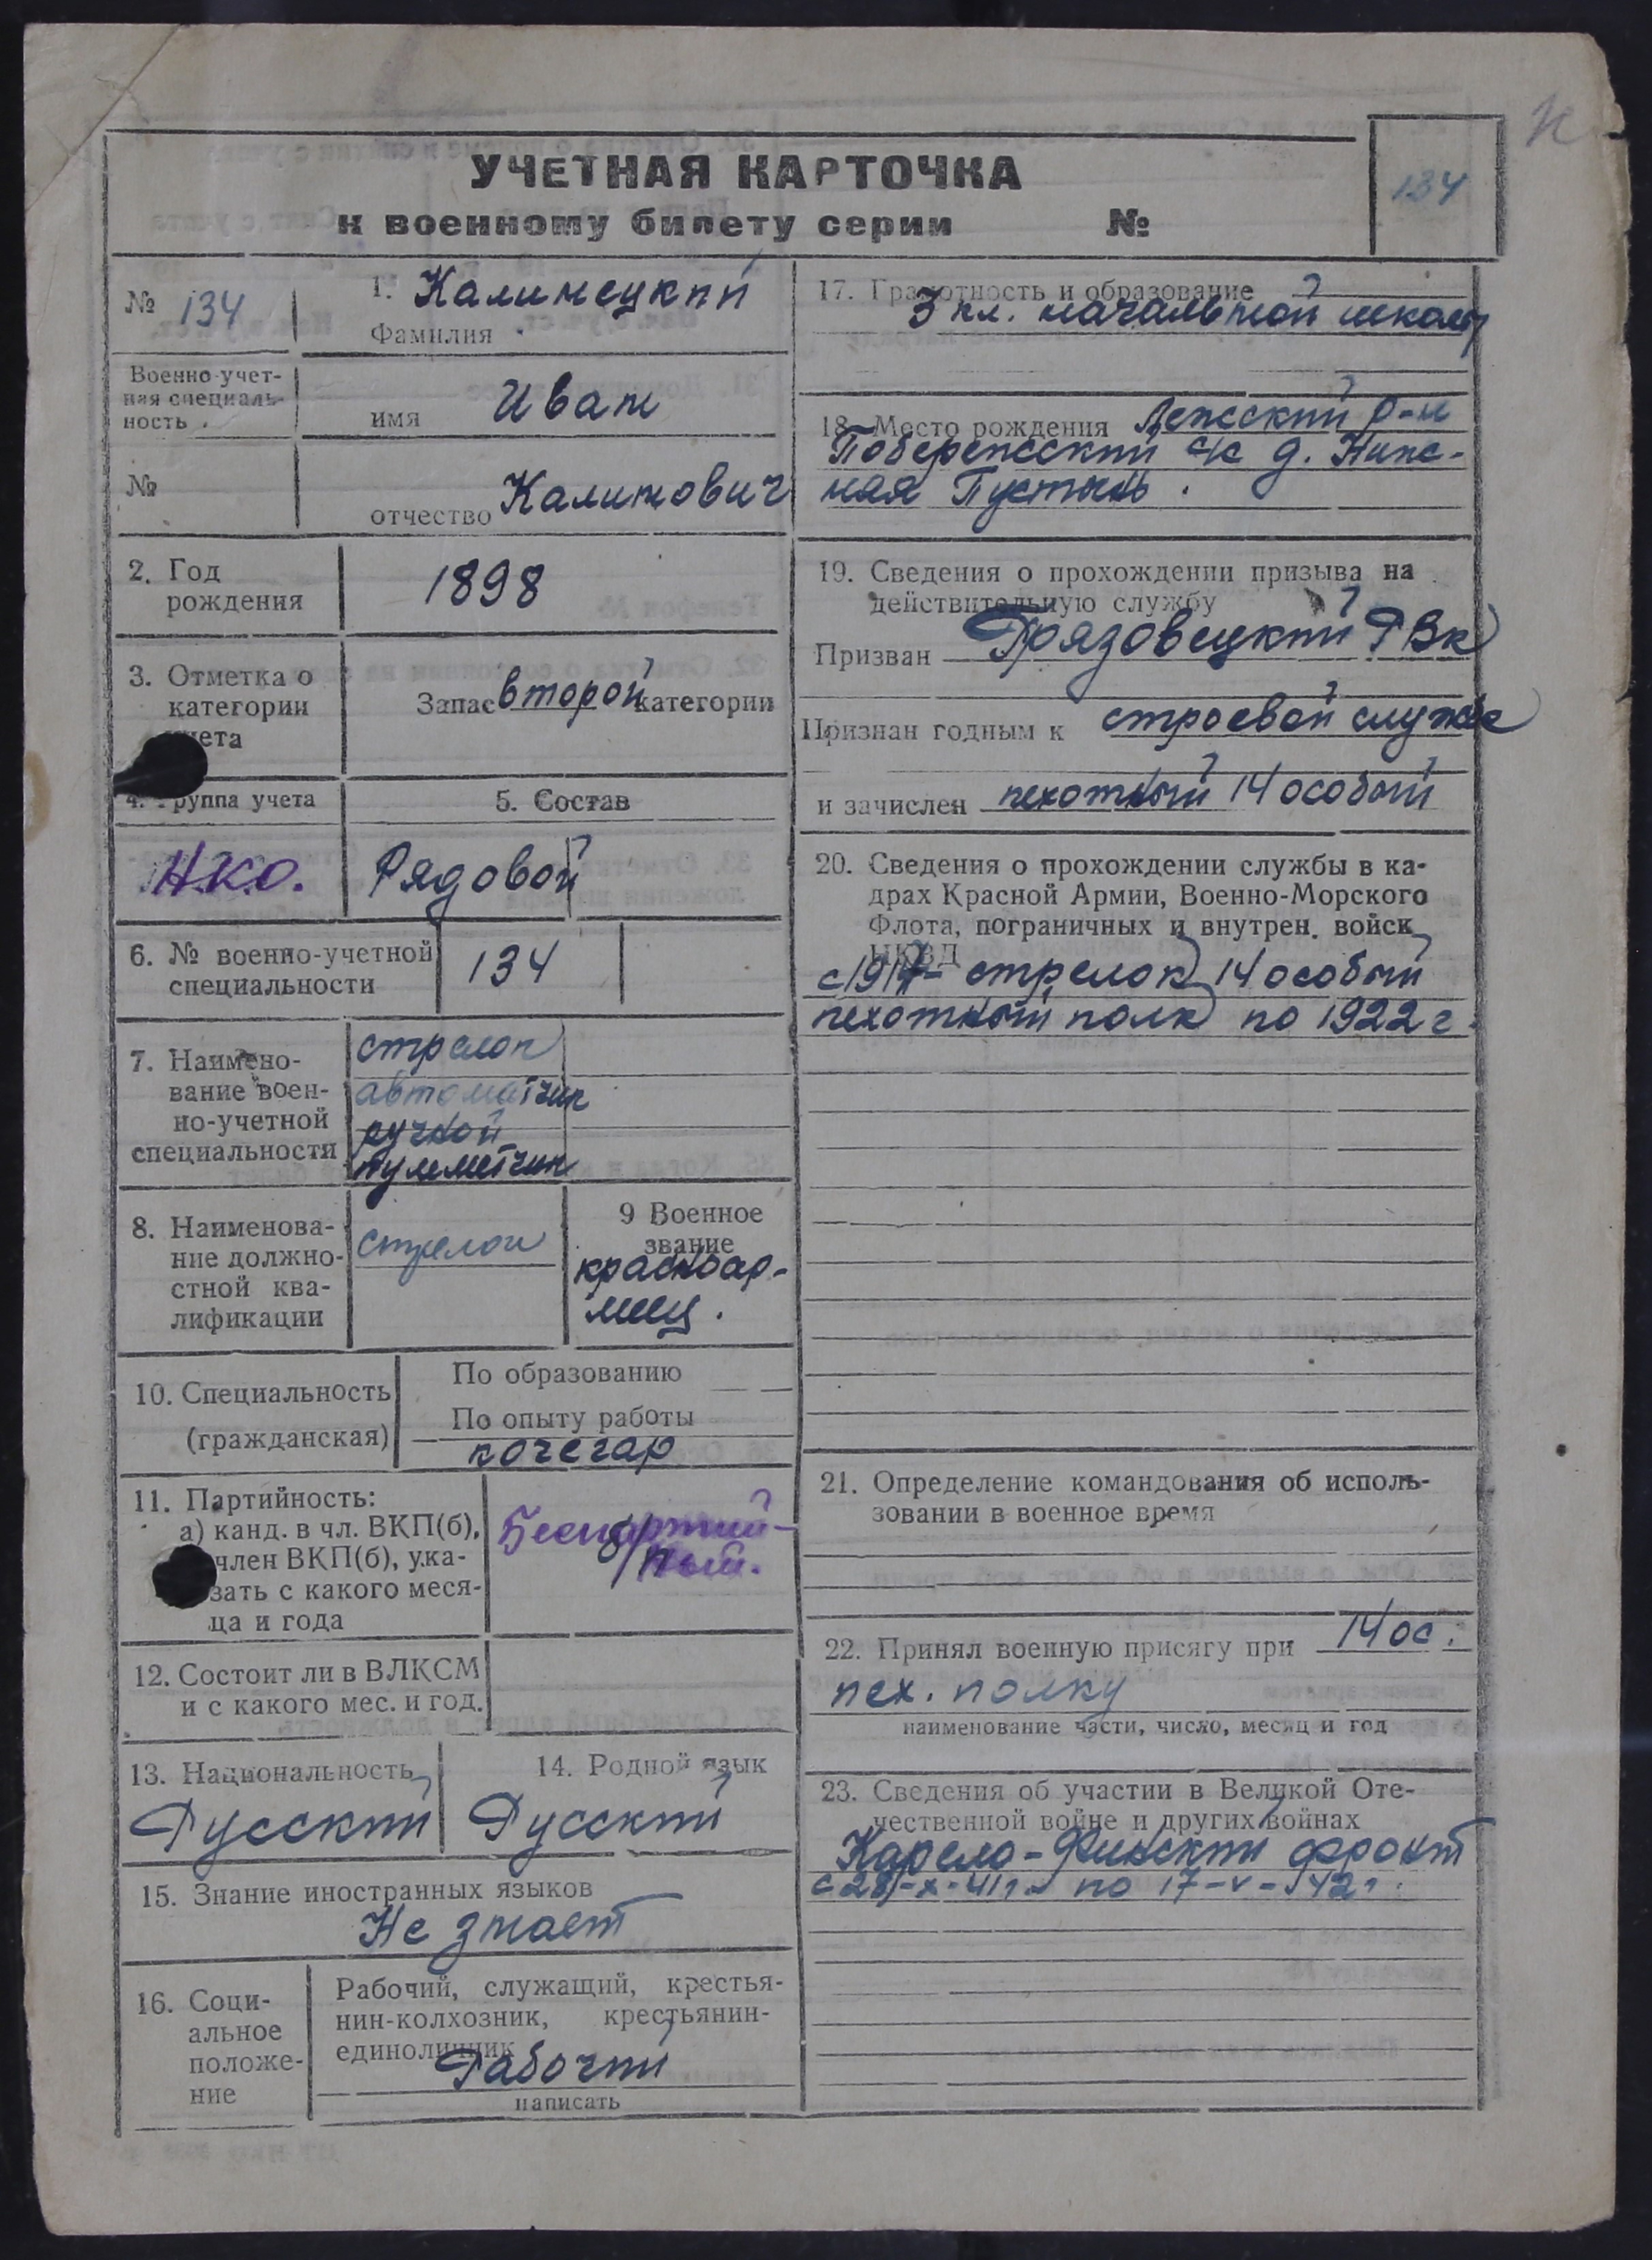 УЧЕТНАЯ КАРТОЧКА
к военному билету серии №
134
№ 134
1. Калинецкий
Фамилия
Военно-учет-
ная специаль-
ность
имя Иван
№
отчество Калинович
2. Год
рождения
1898
3. Отметка о
категории
учета
Запас второй категории
4. Группа учета
5. Состав
НКО.
Рядовой
6. № военно-учетной
специальности
134
7. Наимено-
вание воен-
но-учетной
специальности
стрелок
автоматчик
ручной
пулеметчик
8. Наименова-
ние должно-
стной ква-
лификации
стрелок
9 Военное
звание
красноар-
меец.
10. Специальность
(гражданская)
По образованию
По опыту работы
кочегар
11. Партийность:
а) канд. в чл. ВКП(б),
член ВКП(б), ука-
зать с какого меся-
ца и года
Беспартий-
ный.
б/п
12. Состоит ли в ВЛКСМ
и с какого мес. и год.
13. Национальность
Русский
14. Родной язык
Русский
15. Знание иностранных языков
Не знает
16. Соци-
альное
положе-
ние
Рабочий, служащий, крестья-
нин-колхозник, крестьянин-
единоличник
Рабочий
написать
17. Грамотность и образование
3 кл. начальной школы
18. Место рождения Лежский р-н
Побережский с/с д. Ниж-
няя Пустынь.
19. Сведения о прохождении призыва на
действительную службу
Призван Грязовецкий РВк
Признан годным к строевой службе
и зачислен пехотный 14 особый
20. Сведения о прохождении службы в ка-
драх Красной Армии, Военно-Морского
Флота, пограничных и внутрен. войск
НКВД
с 1917- стрелок 14 особый
пехотный полк по 1922 г.
21. Определение командования об исполь-
зовании в военное время
22. Принял военную присягу при 14 ос.
пех. полку
наименование части, число, месяц и год
23. Сведения об участии в Великой Оте-
чественной войне и других войнах
Карело-Финский фронт
с 28-х-41г. по 17-v-42г.